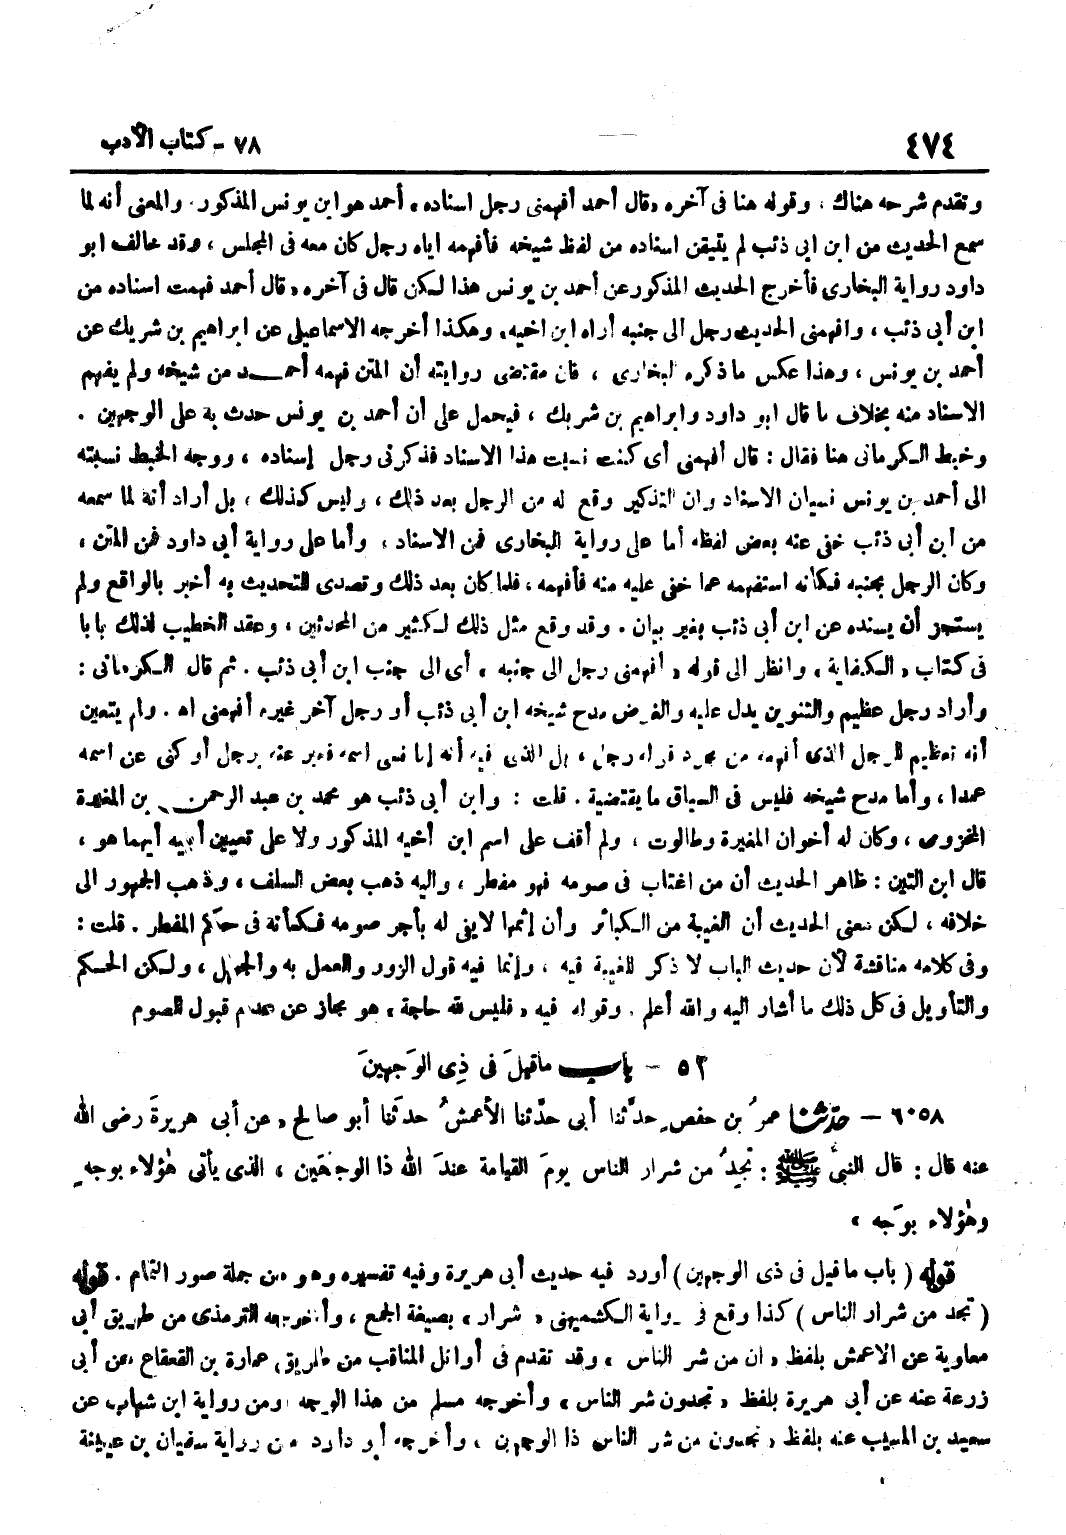 ٤٧٤
٧٨ - كتاب الأدب
وتقدم شرحه هناك ، وقوله هنا فى آخره «قال أحمد أفهمنى رجل اسناده» أحمد هو ابن يونس المذكور. والمعنى أنه لما
سمع الحديث من ابن ابى ذئب لم يتيقن اسناده من لفظ شيخه فأفهمه اياه رجل كان معه فى المجلس ، وقد خالف ابو
داود رواية البخارى فأخرج الحديث المذكور عن أحمد بن يونس هذا لكن قال فى آخره «قال أحمد فهمت اسناده من
ابن أبى ذئب ، وافهمنى الحديث رجل الى جنبه أراه ابن اخيه» وهكذا أخرجه الاسماعيلى عن ابراهيم بن شريك عن
أحمد بن يونس ، وهذا عكس ما ذكره البخارى ، فان مقتضى روايته أن المتن فهمه أحمد من شيخه ولم يفهم
الاسناد منه بخلاف ما قال ابو داود وابراهيم بن شريك ، فيحمل على أن أحمد بن يونس حدث به على الوجهين .
وخبط الكرمانى هنا فقال : قال أفهمنى أى كنت نسيت هذا الاسناد فذكرنى رجل إسناده ، ووجه الخبط نسبته
الى أحمد بن يونس نسيان الاسناد وان التذكير وقع له من الرجل بعد ذلك ، وليس كذلك ، بل أراد أنه لما سمعه
من ابن أبى ذئب خفى عنه بعض لفظه أما على رواية البخارى فمن الاسناد ، وأما على رواية أبى داود فمن المتن ،
وكان الرجل بجنبه فكأنه استفهمه عما خفى عليه منه فأفهمه ، فلما كان بعد ذلك وتصدى للتحديث به أخبر بالواقع ولم
يستجز أن يسنده عن ابن أبى ذئب بغير بيان . وقد وقع مثل ذلك لكثير من المحدثين ، وعقد الخطيب لذلك بابا
فى كتاب «الكفاية» وانظر الى قوله «أفهمنى رجل الى جنبه» أى الى جنب ابن أبى ذئب . ثم قال الكرمانى :
وأراد رجل عظيم والتنوين يدل عليه والغرض مدح شيخه ابن أبى ذئب أو رجل آخر غيره أفهمنى اه . ولم يتعين
أنه تعظيم للرجل الذى أفهمه من مجرد قوله رجل ، بل الذى فيه أنه إما نسى اسمه فعبر عنه برجل أو كنى عن اسمه
عمدا ، وأما مدح شيخه فليس فى السياق ما يقتضية . قلت : وابن أبى ذئب هو محمد بن عبد الرحمن بن المغيرة
المخزومى ، وكان له أخوان المغيرة وطالوت ، ولم أقف على اسم ابن أخيه المذكور ولا على تعيين أبيه أيهما هو ،
قال ابن التين : ظاهر الحديث أن من اغتاب فى صومه فهو مفطر ، واليه ذهب بعض السلف ، وذهب الجمهور الى
خلافه ، لكن معنى الحديث أن الغيبة من الكبائر وأن إثمها لا يفى له بأجر صومه فكأنه فى حكم المفطر . قلت :
وفى كلامه مناقشة لأن حديث الباب لا ذكر للغيبة فيه ، وإنما فيه قول الزور والعمل به والجهل ، ولكن الحكم
والتأويل فى كل ذلك ما أشار اليه والله أعلم . وقوله فيه «فليس لله حاجة» هو مجاز عن عدم قبول الصوم
٥٢ - باب ما قيلَ فى ذِى الوَجهين
٦٠٥٨ - حدّثنا عمرُ بن حفصٍ حدَّثنا أبى حدَّثنا الأعمشُ حدثَنا أبو صالح «عن أبى هريرةَ رضى الله
عنه قال : قال النبىُّ ﷺ : تجدُ من شرار الناس يومَ القيامة عندَ الله ذا الوجهَين ، الذى يأتى هٰؤلاء بوجهٍ
وهٰؤلاء بوَجه »
قوله ( باب ما قيل فى ذى الوجهين ) أورد فيه حديث أبى هريرة وفيه تفسيره وهو من جملة صور النمام . قوله
( تجد من شرار الناس ) كذا وقع فى رواية الكشميهنى «شرار» بصيغة الجمع ، وأخرجه الترمذى من طريق أبى
معاوية عن الاعمش بلفظ «ان من شر الناس» وقد تقدم فى أوائل المناقب من طريق عمارة بن القعقاع عن أبى
زرعة عنه عن أبى هريرة بلفظ «تجدون شر الناس» وأخرجه مسلم من هذا الوجه ومن رواية ابن شهاب عن
سعيد بن المسيب عنه بلفظ «تجدون من شر الناس ذا الوجهين» وأخرجه أبو داود من رواية سفيان بن عيينة